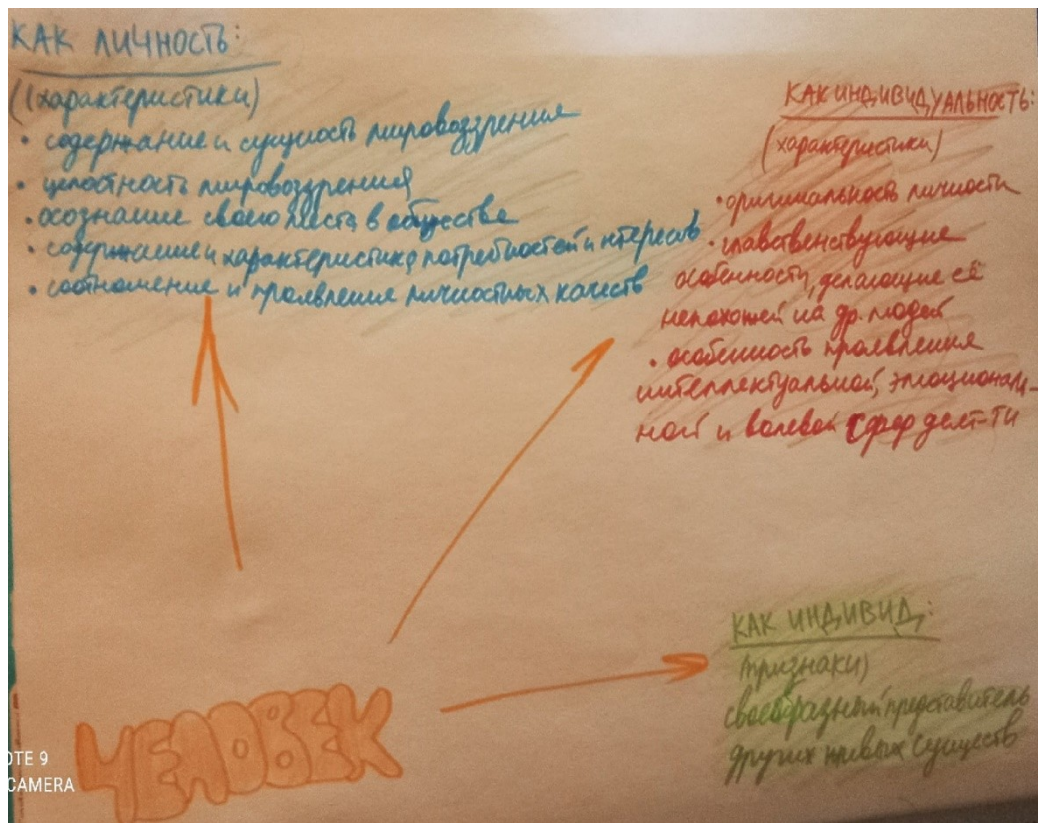 КАК ЛИЧНОСТЬ:
(характеристики)
• содержание и сущность мировоззрения
• целостность мировоззрения
• осознание своего места в обществе
• содержание и характеристика потребностей и нтересов
• соотношение и проявление личностных качеств
КАК ИНДИВИДУАЛЬНОСТЬ:
(характеристики)
• оригинальность личности
• главственствующие
особенности, делающие её
непохожей на др. людей
• особенность проявления
интеллектуальной, эмоциональ-
ной и волевой сфер деят-ти
КАК ИНДИВИД:
(признаки)
своеобразный представитель
других живых существ
ЧЕЛОВЕК
OTE 9
CAMERA